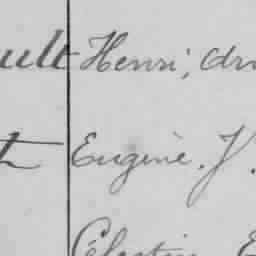 ult Henri, dr
t Eugène. J.
Célestin E